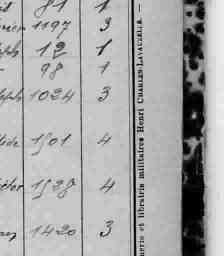 81 1
1197 3
12 1
98 1
1024 3
1501 4
1528 4
1420 3
merie et librairie militaires Henri CHARLES-LAVAUZELLE. —